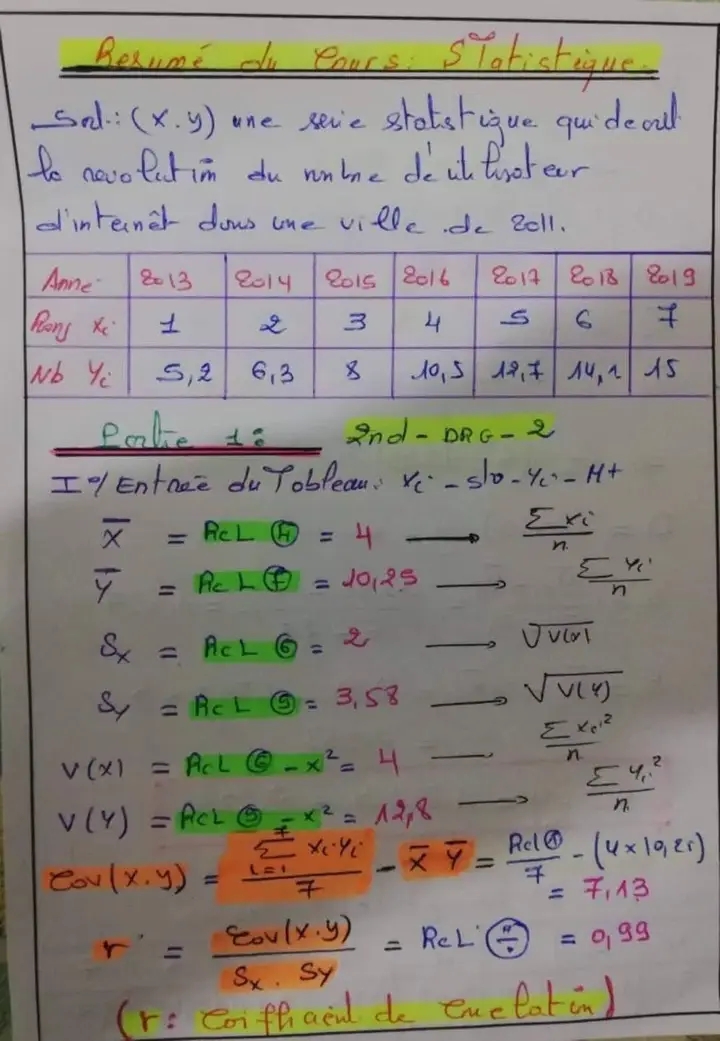 Resumé du Cours: STatistique
Soit: (x.y) une serie statistique qui decrit
le du nmbre de utilisateur
d'internêt dans une ville de 2011.
Anne 2013 2014 2015 2016 2017 2018 2019
Rang xi 1 2 3 4 5 6 7
Nb Yi 5,2 6,3 8 10,5 12,7 14,1 15
Partie 1: 2nd - DRG - 2
I°/ Entree du Tableau: xi - sto - Yi - M+
X̅ = RcL ④ = 4 → Σxi/n
Y̅ = RcL ⑦ = 10,25 → Σyi/n
Sx = RcL ⑥ = 2 → √V(x)
Sy = RcL ⑨ = 3,58 → √V(Y)
V(x) = RcL ⑥ - x² = 4 — Σxi²/n
V(Y) = RcL ⑨ - x² = 12,8 → Σyi²/n
Cov(x.y) = Σ(i=1→7) xi.yi/7 - X̅ Y̅ = Rcl/7 - (4x10,25)
= 7,13
r = Cov(x.y)/Sx.Sy = RcL ÷ = 0,99
(r: de)